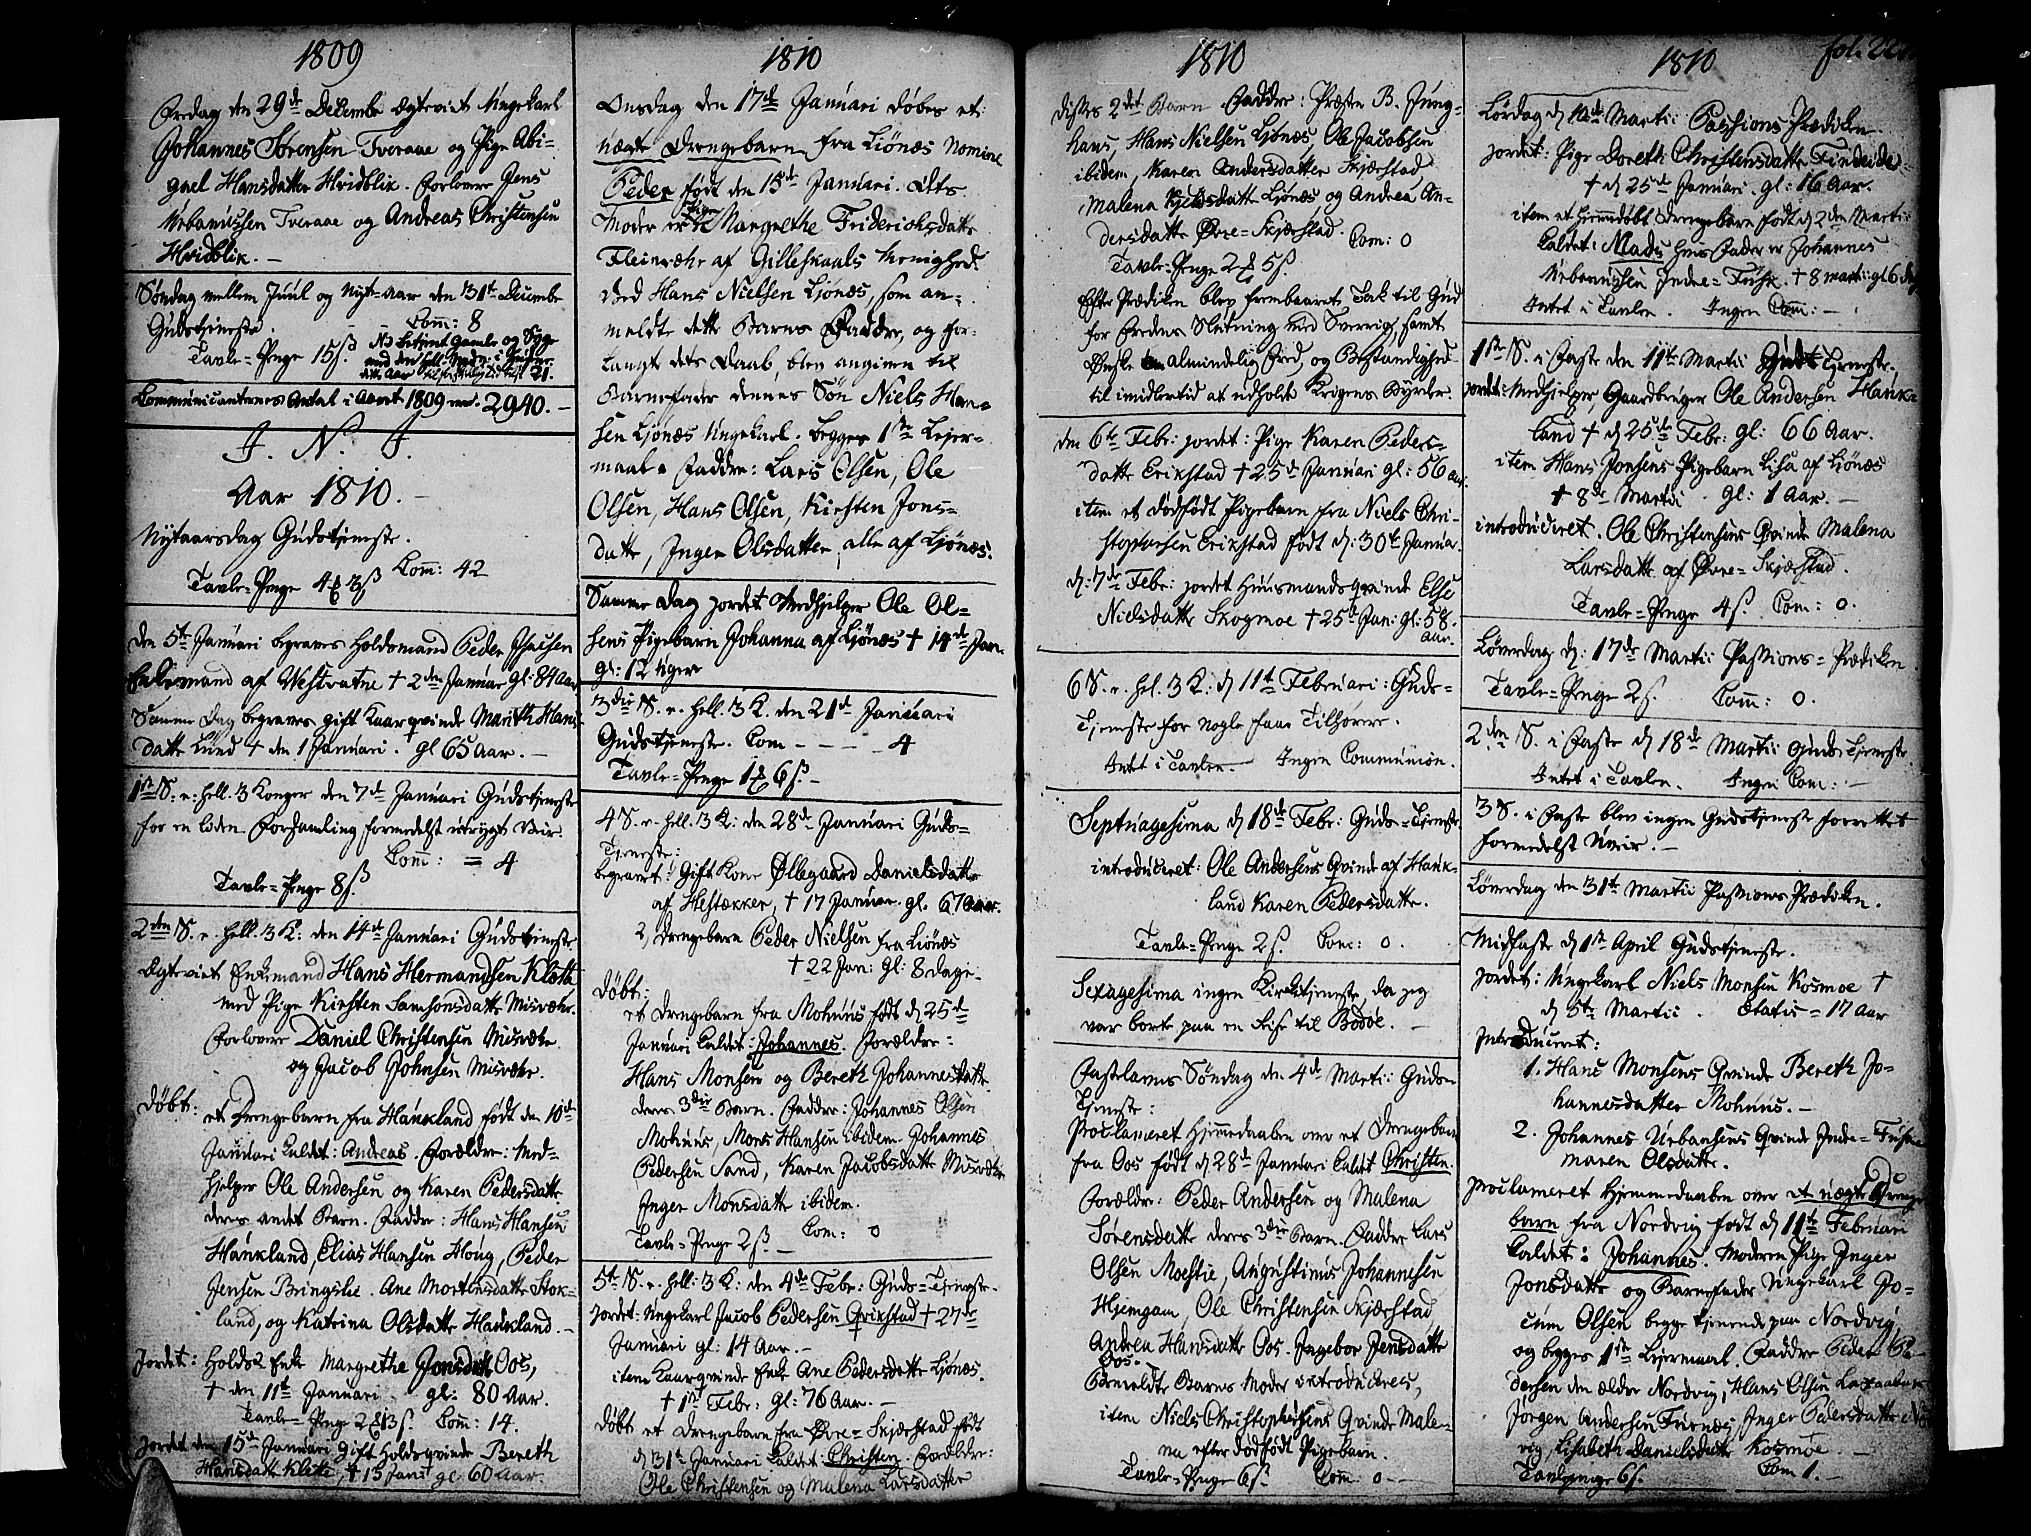 1809
Fredag den 29de Decembr Ægteviet Ungekarl
Johannes Sørensen Tveraae og Pige Abi-
gael Hansdatter Hvidblik. Forlover Jens
Urbanussen Tveraae og Andreas Christensen
Hvidblik. -
Søndag mellem Juul og Nyt-aar den 31te Decembr
Gudstjeneste. Com: 8
Tavle-Penge 15ß.
NB betjent gamle og Syge
21.
Communicanternes Antal i Aaret 1809 2940. -
J. N. J.
Aar 1810. -
Nytaarsdag Gudstjeneste.
Tavle-Penge 4 3ß Com: 42
den 5te Januari begraves Holdsmand Peder
Enkemand af Westvatne † 2den Januar gl: 84 Aar
Samme Dag begraves gift Kaarqvinde Marith Hans
datter Lund † den 1 Januari. gl 65 Aar. -
1ste S. e. Hell. 3 Konger den 7de Januari Gudstjeneste
for en liden Forsamling formedelst utrygt Veir.
Com: = 4
Tavle-Penge 8ß.
2den S. e. Hell. 3 K: den 14de Januari Gudstjeneste
Ægteviet Enkemand Hans Hermandsen Klætte
med Pige Kirsten Samsonsdatter Misvæhr.
Forlovere Daniel Christensen Misvæhr
og Jacob Johnsen Misvæhr.
Døbt: et Drengebarn fra Haukland født den 10de
Januari kaldet: Andreas. Forældre: Med-
hjelper Ole Andersen og Karen Pedersdatter
deres andet Barn. Faddre: Hans Hansen
Haukland, Elias Hansen Houg, Peder
Jensen Bringslie. Ane Mortensdatter Stok-
land, og Katrina Olsdatter Haukland. -
Jordet: Holds Enke Margrethe Jonsdatter Oos,
† den 11te Januari gl: 80 Aar.
Tavle-Penge 2 13ß. Com: 14.
Jordet den 15de Januari gift Holdsqvinde Bereth
Hansdatter Klette, † 13 Jan: gl 60 Aar.
1810
Onsdag den 17de Januari døbes et
uægte Drengebarn fra Ljønes Nomine
Peder født den 15de Januari. Dets
Moder er Pige Margrethe Friderichsdatter
Fleinvæhr af Gilleskaals Menighed.
Ved Hans Nielsen Ljønes, som an-
meldte dette Barns Faddre, og for-
langte dets Daab, blev angiven til
Barnefader dennes Søn Niels Han-
sen Ljønes Ungekarl. begges 1ste Lejer-
maal. Faddre: Lars Olsen, Ole
Olsen, Hans Olsen, Kirsten Jons-
datter, Inger Olsdatter, alle af Ljønes.
Samme Dag jordet Medhjelper Ole Ol-
sens Pigebarn Johanna af Ljønes † 14de Jan.
gl: 12 Uger
3die S. e. Hell. 3 K. den 21de Januari
Gudstjeneste. Com - - - - 4
Tavle-Penge 1 6ß. -
4 S. e. Hell. 3 K: den 28de Januari Guds-
Tjeneste:
begravet: Gift Kone Øllegaard Danielsdatter
af Hestækker, † 17 Januar. gl. 67 Aar.
2, Drengebarn Peder Nielsen fra Ljønes
† 22 Jan: gl: 8 dage.
Døbt:
et Drengebarn fra Mohuus født d 25de
Januari kaldet: Johannes. Forældre:
Hans Monsen og Bereth Johannesdatter
deres 3die Barn. Faddre: Johannes Olsen
Mohuus, Mons Hansen ibidem. Johannes
Pedersen Sand, Karen Jacobsdatter Misvæhr
Inger Monsdatter ibidem.
Tavle-Penge 2ß. - Com: 0
5te S. e. Hell: 3 K: den 4de Febr: Guds-Tjeneste.
Jordet: Ungekarl Jacob Pedersen Qvikstad † 27de
Januari gl: 14 Aar. -
item Kaarqvinde Enke Ane Pedersdatter Ljønes.
† 1ste Febr: gl: 76 Aar. -
Døbt et Drengebarn fra Øvre-Skjærstad født
d 31te Januari kaldet: Christen. Forældre:
Ole Christensen og Malena Larsdatter
1810
disses 2det Barn Faddre: Præsten B. Jung-
hans, Hans Nielsen Ljønes, Ole Jacobsen
ibidem, Karen Andersdatter Skjærstad
Malena Kjeldsdatter Ljønes og Andrea An-
dersdatter Øvre-Skjærstad. Com: 0
Tavle-Penge 2 5ß
Efter Prædiken blev frembaaret Tak til Gud
for Fredens Slutning med Sverrig, samt
Ønske om almindelig Fred, og Bestandighed
til imidlertid at udholde Krigens Byrder.
den 6te Febr: jordet: Pige Karen Peders-
datter Erikstad † 25de Januari gl: 56 aar.
item et dødfødt Pigebarn fra Niels Chri-
stophersen Erikstad født d: 30te Janua.
d: 7de Febr: jordet Huusmandsqvinde Else
Nielsdatter Skogmoe † 25de Jan: gl: 58.
aar.
6 S. e. Hel. 3 K: d 11te Februari: Guds-
Tjeneste for nogle faae Tilhørere.
Intet i Tavlen. Ingen Communion.
Septuagesima d 18de Febr: Guds-Tjeneste.
introduceret: Ole Andersens Qvinde af Hauk-
land Karen Pedersdatter.
Tavle-Penge 2ß. Com: 0.
Sexagesima ingen Kirketjeneste, da jeg
var borte paa en Reise til Bodøe. -
Fastelavns Søndag den 4de Marti: Guds-
Tjeneste:
Proclameret Hjemmedaaben over et Drengebarn
fra Oos født d 28de Januari kaldet Christen.
Forældre: Peder Andersen og Malena
Sørensdatter deres 3die Barn. Faddre Lars
Olsen Moestie, Augustinus Johannesen
Hjemgam, Ole Christensen Skjærstad,
Andrea Hansdatter Oos. Ingebor Jensdatter
Oos.
Bemeldte Barns Moder introduceres,
item Niels Christophersens Qvinde Male-
na efter dødfødt Pigebarn.
Tavle-Penge 6ß Com: 0 -
1810 fol. 22
Lørdag d 10de Marti: Passions Prædiken.
Jordet: Pige Doreth Christensdatter Findeide -
† d 25de Januari. gl: 16 Aar.
item et hjemmedøbt Drengebarn født d 2den Marti:
kaldet: Mads hvis Fader er Johannes
Urbanussen Indre-Fuske. † 8 Marti: gl 6 dag
Intet i Tavlen. Ingen Com: -
1ste S. i Faste den 11te Marti: Guds Tjeneste.
Jordet: Medhjelper, Gaardbruger Ole Andersen Hauk-
land † d 25de Febr: gl: 66 Aar.
item Hans Jonsens Pigebarn Lisa af Ljønes
† 8de Marti: gl: 1 Aar. -
introduceret. Ole Christensens Qvinde Malena
Larsdatter af Øvre-Skjærstad.
Tavle-Penge 4ß. Com: 0.
Løverdag d: 17de Marti: Passions-Prædiken.
Tavle-Penge 2ß. Com: 0.
2den S. i Faste d 18de Marti: Guds Tjeneste.
Intet i Tavlen. Ingen Com: -
3 S. i Faste blev ingen Gudstjeneste forrettet
formedelst Uveir. -
Løverdag den 31te Martii Passions Prædiken.
Midfaste d 1ste April Gudstjeneste.
Jordet: Ungekarl Niels Monsen Kosmoe †
d 5te Martii. Ætatis = 17 Aar
Introduceret:
1. Hans Monsens Qvinde Bereth Jo-
hannesdatter Mohuus. -
2. Johannes Urbansens Qvinde Indre-Fuske
Maren Olsdatter.
Proclameret Hjemmedaaben over et uægte Drenge
barn fra Nordvig født d 11te Februari
kaldet: Johannes. Moderen Pige Inger
Jonsdatter og Barnefader Ungekarl Jo-
cum Olsen begge tjenende paa Nordvig,
og begges 1ste Lejermaal. Faddre Peder Pe-
dersen den ældre Nordvig, Hans Olsen
Jørgen Andersen Furnes, Inger Pedersdatter No
vig, Lisabeth Danielsdatter Kosmoe. -
Tavlepenge 6ß. Com 1. -